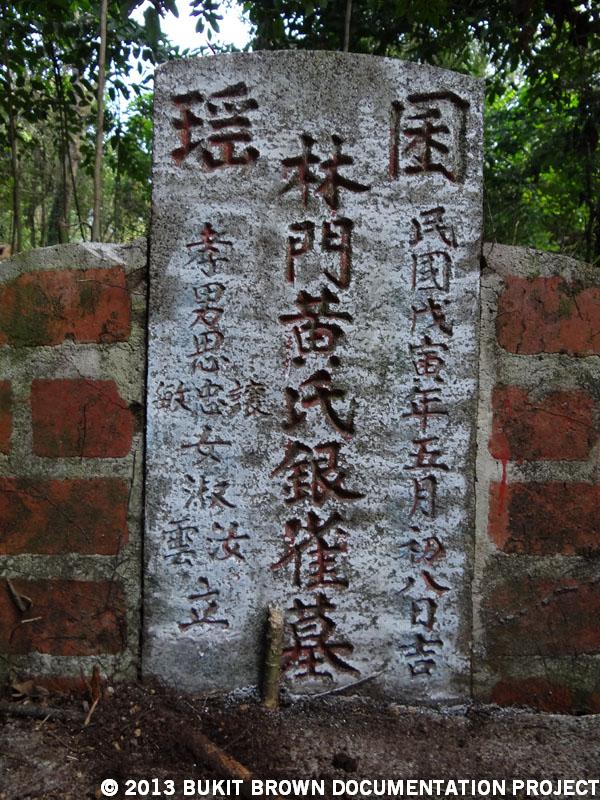 囷瑶
民國戊寅年五月初八日吉
林門黃氏銀雀墓
孝男思讓忠敏女淑汝雲立
© 2013 BUKIT BROWN DOCUMENTATION PROJECT